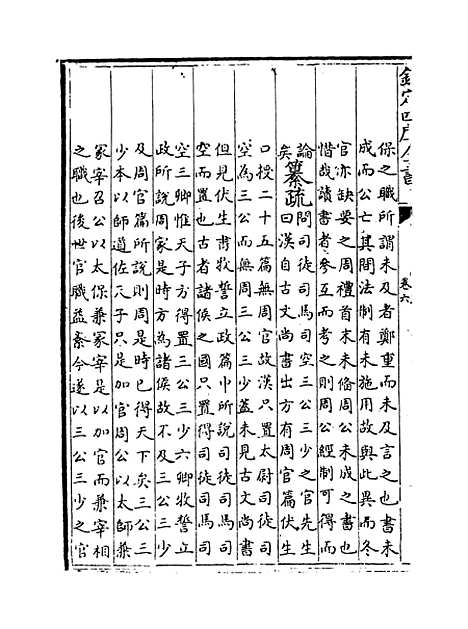 欽定四庫全書
卷六
保之職所謂未及者鄭重而未及言之也書未
成而公亡其間法制有未施用故與此異而冬
官亦缺要之周禮首末未備周公未成之書也
惜哉讀書者參互而考之則周公經制可得而
論矣纂疏問司徒司馬司空三公三少之官先生
曰漢自古文尚書出方有周官篇伏生
口授二十五篇無周官故漢只置太尉司徒司
空為三公而無周三公三少蓋未見古文尚書
但見伏生書牧誓立政篇中所說司徒司馬司
空而置也古者諸侯之國只置得司徒司馬司
空三卿惟天子方得置三公三少六卿牧誓立
政所說周家是時方為諸侯故不及三公三少
及周官篇所說則周是時已得天下矣三公三
少本以師道佐天子只是加官周公以太師兼
冢宰召公以太保兼冢宰是以加官而兼宰相
之職也後世官職益紊今遂以三公三少之官